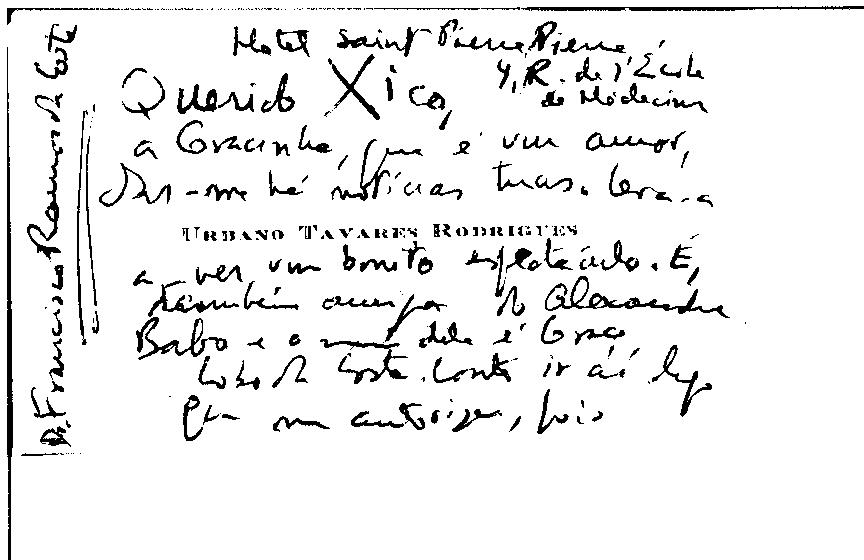 Hotel Saint Pierre Pierre,
4, R. de l'École
de Médecine
Querido Xico,
a Gracinha, que é um amor,
dar-me há notícias tuas. Leva-a
URBANO TAVARES RODRIGUES
a ver um bonito espectáculo. É,
também amiga do Alexandre
Babo e o nome dela é Graça
Lobo da Costa. Conto ir aí logo
que me autorizem, pois
Dr. Francisco Ramos da Costa